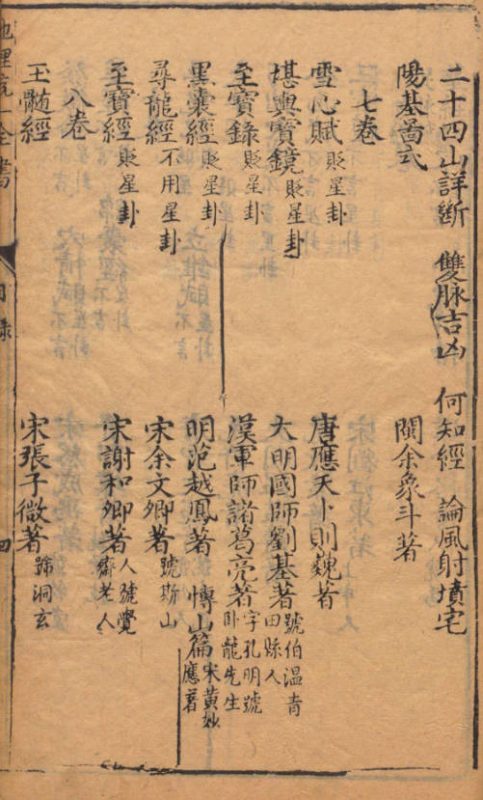 二十四山詳斷　雙脉吉凶　何知經　論風射墳宅
陽基啚式　閩余象斗著
七卷
雪心賦　貶星卦　唐應天卜則巍著
堪輿寶鏡　貶星卦　大明國師劉基著　號伯溫青田縣人
至寶錄　貶星卦　漢軍師諸葛亮著　字孔明號卧龍先生
黑囊經　貶星卦　明范越鳳著　博山篇　宋黃妙應著
尋龍經　不用星卦　宋余文卿著
至寶經　貶星卦　宋謝和卿著　人號覺齋老人
八卷
玉髓經　宋張子微著　號洞玄
地理統一全書
目錄
四